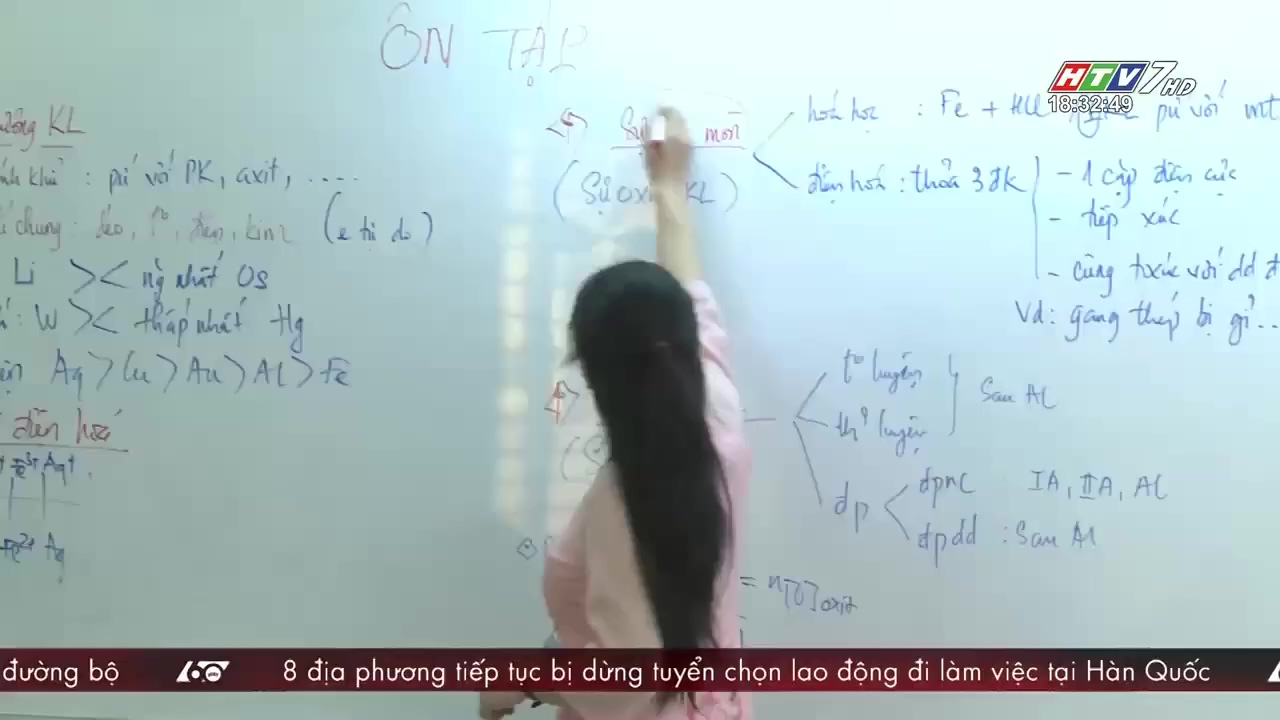 ÔN TẬP
KL
: pứ với PK, axit, ....
chung: dẻo, t°, điện, kim (e tự do)
Li >< ng nhất Os
: W >< thấp nhất Hg
Ag > Cu > Au > Al > Fe
điện hoá
Ag
mòn
(Sự oxi KL)
hoá học : Fe + pứ với
điện hoá : thỏa 3 đk
- 1 cặp điện cực
- tiếp xúc
- cùng txúc với dd
Vd: gang thép bị gỉ...
t° luyện
thủy luyện
Sau Al
đp
đpnc IA, IIA, Al
đpdd : Sau Al
= n[O]oxit
HTV7 HD
18:32:49
đường bộ 60 giây 8 địa phương tiếp tục bị dừng tuyển chọn lao động đi làm việc tại Hàn Quốc